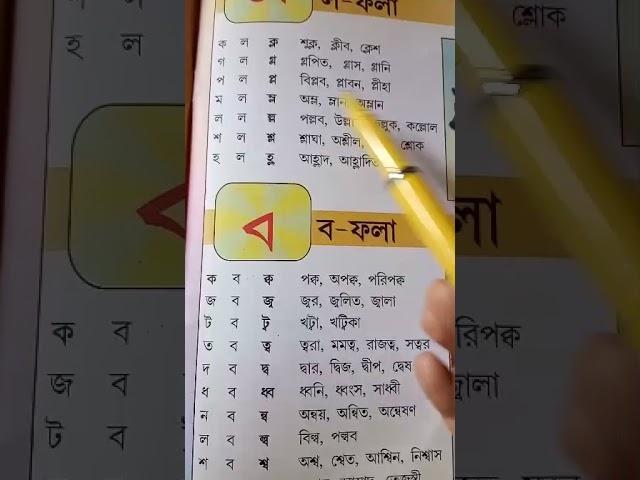 ল-ফলা
ক ল ক্ল শুক্ল, ক্লীব, ক্লেশ
গ ল গ্ল গ্লপিত, গ্লাস, গ্লানি
প ল প্ল বিপ্লব, প্লাবন, প্লীহা
ম ল ম্ল অম্ল, ম্লান, অম্লান
ল ল ল্ল পল্লব, কল্লোল
শ ল শ্ল শ্লাঘা, অশ্লীল, শ্লোক
হ ল হ্ল আহ্লাদ, আহ্লাদিত
ব ব-ফলা
ক ব ক্ব পক্ব, অপক্ব, পরিপক্ব
জ ব জ্ব জ্বর, জ্বলিত, জ্বালা
ট ব ট্ব খট্বা, খট্বিকা
ত ব ত্ব ত্বরা, মমত্ব, রাজত্ব, সত্বর
দ ব দ্ব দ্বার, দ্বিজ, দ্বীপ, দ্বেষ
ধ ব ধ্ব ধ্বনি, ধ্বংস, সাধ্বী
ন ব ন্ব অন্বয়, অন্বিত, অন্বেষণ
ল ব ল্ব বিল্ব, পল্বব
শ ব শ্ব অশ্ব, শ্বেত, আশ্বিন, নিশ্বাস